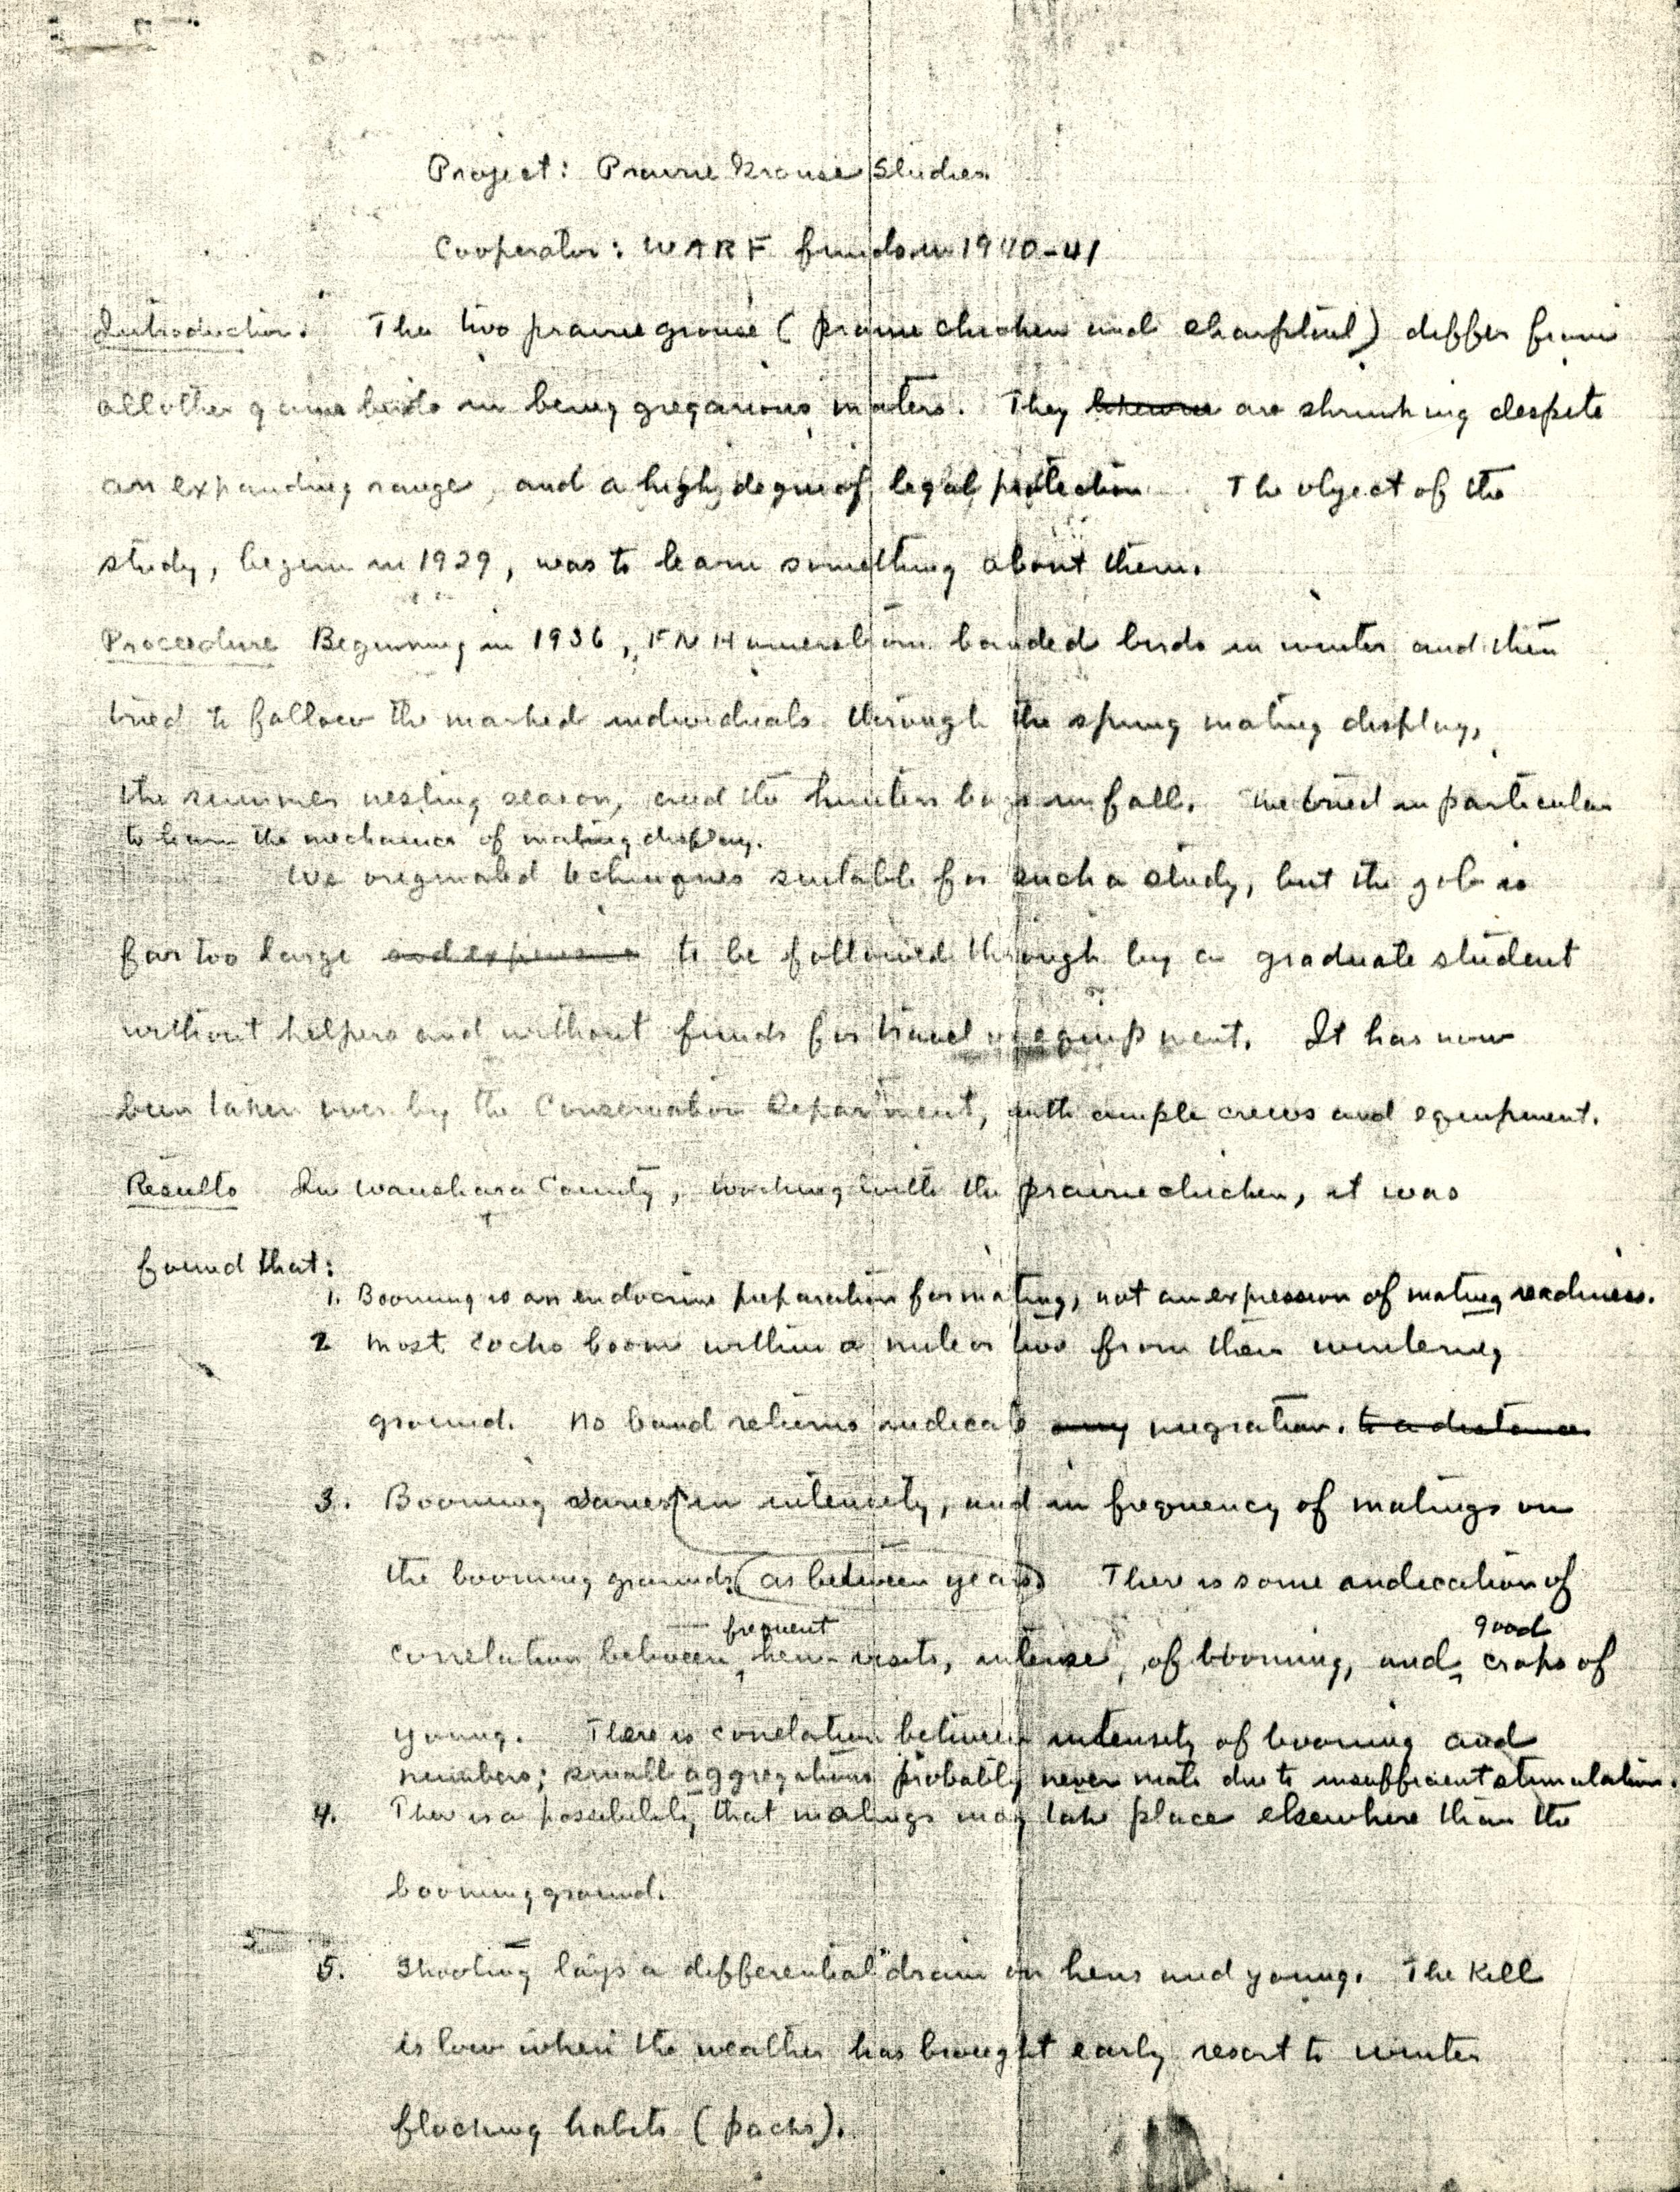 Project: Prairie Grouse Studies.
Cooperator: WARF funds in 1940-41
Introduction. The two prairie grouse (prairie chicken and sharptail) differ from
all other game birds in being gregarious maters. They likewise are shrinking despite
an expanding range, and a high degree of legal protection. The object of the
study, begun in 1929, was to learn something about them.
Procedure Beginning in 1936, FN Hamerstrom banded birds in winter and then
tried to follow the marked individuals through the spring mating display,
the summer nesting season, and the hunters bags in fall. We tried in particular
to learn the mechanics of mating display.
We originated techniques suitable for such a study, but the job is
far too large and expensive to be followed through by a graduate student
without helpers and without funds for travel or equipment. It has now
been taken over by the Conservation Department, with ample crews and equipment.
Results In Waushara County, working with the prairie chicken, it was
found that:
1. Booming is an endocrine preparation for mating, not an expression of mating readiness.
2 Most cocks boom within a mile or two from their wintering
ground. No band returns indicate any migration. to a distance.
3. Booming varies in intensity, and in frequency of matings on
the booming grounds, (as between years) There is some indication of
frequent good
correlation between hen visits, intense, of booming, and crops of
young. There is correlation between intensity of booming and
numbers; small aggregations probably never mate due to insufficient stimulation.
4. There is a possibility that matings may take place elsewhere than the
booming ground.
5. Shooting lays a differential drain on hens and young. The kill
is low when the weather has brought early resort to winter
flocking habits (packs).